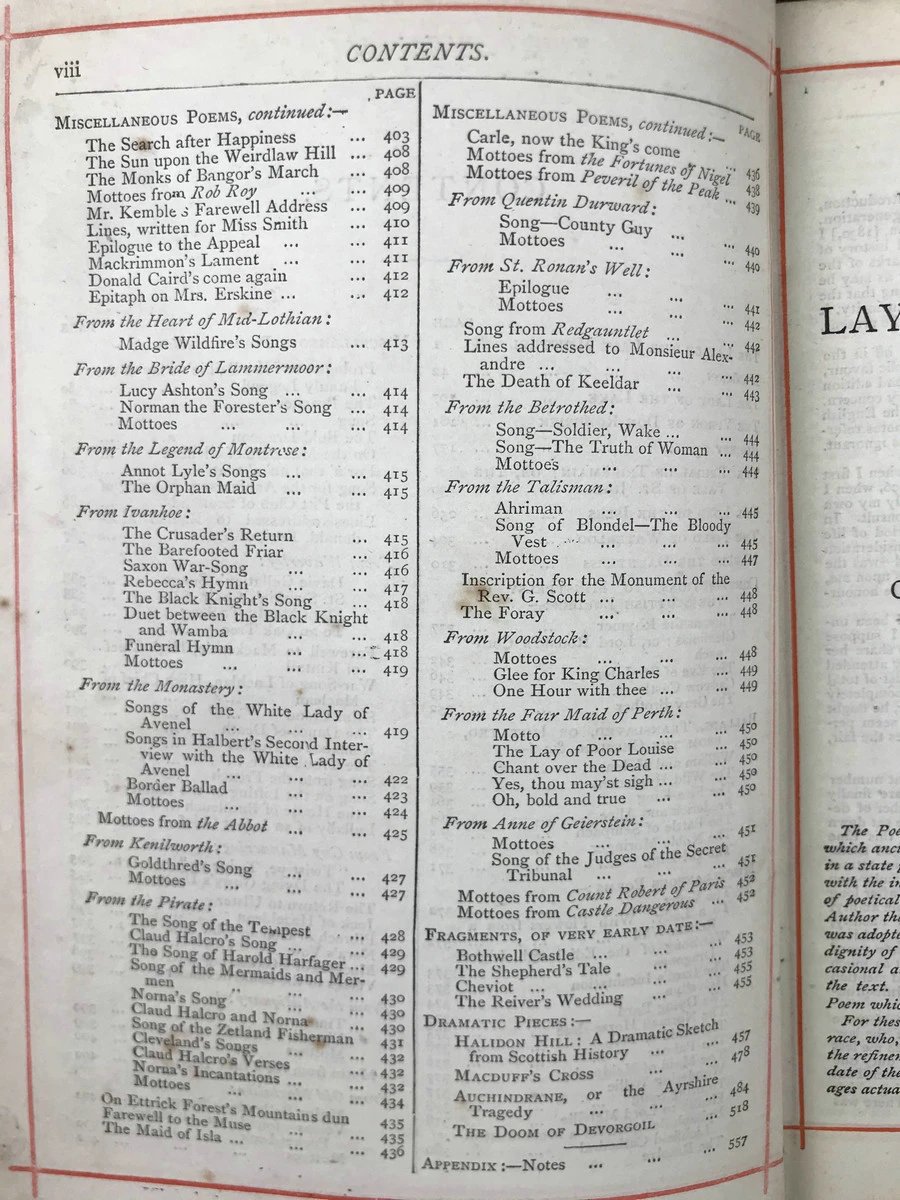 viii
CONTENTS.
PAGE
MISCELLANEOUS POEMS, continued:—
The Search after Happiness ... 403
The Sun upon the Weirdlaw Hill ... 408
The Monks of Bangor's March ... 408
Mottoes from Rob Roy ... ... 409
Mr. Kemble's Farewell Address ... 409
Lines, written for Miss Smith ... 410
Epilogue to the Appeal ... ... 411
Mackrimmon's Lament ... ... 411
Donald Caird's come again ... 412
Epitaph on Mrs. Erskine ... ... 412
From the Heart of Mid-Lothian:
Madge Wildfire's Songs ... 413
From the Bride of Lammermoor:
Lucy Ashton's Song ... ... 414
Norman the Forester's Song ... 414
Mottoes ... ... ... 414
From the Legend of Montrose:
Annot Lyle's Songs ... ... 415
The Orphan Maid ... ... 415
From Ivanhoe:
The Crusader's Return ... 415
The Barefooted Friar ... 416
Saxon War-Song ... ... 416
Rebecca's Hymn ... ... 417
The Black Knight's Song ... 418
Duet between the Black Knight
and Wamba ... ... 418
Funeral Hymn ... ... 418
Mottoes ... ... ... 419
From the Monastery:
Songs of the White Lady of
Avenel ... ... ... 419
Songs in Halbert's Second Inter-
view with the White Lady of
Avenel ... ... ... 422
Border Ballad ... ... 423
Mottoes ... ... ... 424
Mottoes from the Abbot ... ... 425
From Kenilworth:
Goldthred's Song ... ... 427
Mottoes ... ... ... 427
From the Pirate:
The Song of the Tempest ... 428
Claud Halcro's Song ... ... 429
The Song of Harold Harfager ... 429
Song of the Mermaids and Mer-
men ... ... ... 430
Norna's Song ... ... 430
Claud Halcro and Norna ... 430
Song of the Zetland Fisherman 431
Cleveland's Songs ... ... 432
Claud Halcro's Verses ... 432
Norna's Incantations ... ... 432
Mottoes ... ... ... 434
On Ettrick Forest's Mountains dun 435
Farewell to the Muse ... ... 435
The Maid of Isla ... ... ... 436
PAGE
MISCELLANEOUS POEMS, continued:—
Carle, now the King's come ... 436
Mottoes from the Fortunes of Nigel 438
Mottoes from Peveril of the Peak ... 439
From Quentin Durward:
Song—County Guy ... ... 440
Mottoes ... ... ... 440
From St. Ronan's Well:
Epilogue ... ... ... 441
Mottoes ... ... ... 442
Song from Redgauntlet ... ... 442
Lines addressed to Monsieur Alex-
andre ... ... ... ... 442
The Death of Keeldar ... ... 443
From the Betrothed:
Song—Soldier, Wake ... ... 444
Song—The Truth of Woman ... 444
Mottoes ... ... ... 444
From the Talisman:
Ahriman ... ... ... 445
Song of Blondel—The Bloody
Vest ... ... ... ... 445
Mottoes ... ... ... 447
Inscription for the Monument of the
Rev. G. Scott ... ... ... 448
The Foray ... ... ... 448
From Woodstock:
Mottoes ... ... ... 448
Glee for King Charles ... 449
One Hour with thee ... ... 449
From the Fair Maid of Perth:
Motto ... ... ... 450
The Lay of Poor Louise ... 450
Chant over the Dead ... ... 450
Yes, thou may'st sigh ... ... 450
Oh, bold and true ... ... 450
From Anne of Geierstein:
Mottoes ... ... ... 451
Song of the Judges of the Secret
Tribunal ... ... ... 451
Mottoes from Count Robert of Paris 452
Mottoes from Castle Dangerous ... 452
FRAGMENTS, OF VERY EARLY DATE:—
Bothwell Castle ... ... ... 453
The Shepherd's Tale ... ... 453
Cheviot ... ... ... ... 455
The Reiver's Wedding ... ... 455
DRAMATIC PIECES:—
HALIDON HILL: A Dramatic Sketch
from Scottish History ... ... 457
MACDUFF'S CROSS ... ... 478
AUCHINDRANE, or the Ayrshire
Tragedy ... ... ... 484
THE DOOM OF DEVORGOIL ... 518
APPENDIX:—Notes ... ... ... 557
LAY
The Poe
which anci
in a state
with the in
of poetical
Author tha
was adopte
dignity of
casional a
the text.
Poem whic
For thes
race, who,
the refinem
date of the
ages actua